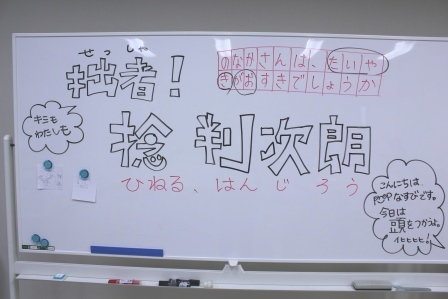 せっしゃ
拙者！
のなかさんは、たいや
きがおすきでしょうか
キミも
わたしも
捻 判次朗
ひねる、はんじろう
こんにちは、
POPなすびです。
今日は
頭をつかうよ。
イヒヒヒヒ！